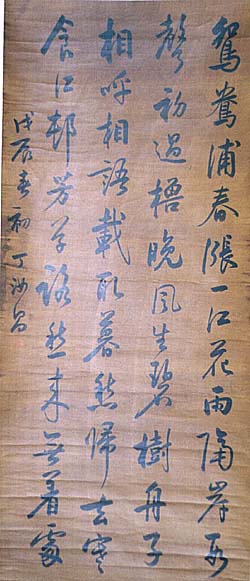 鴛鴦浦春漲一江花雨隔岸數
聲初過櫓晚風生碧樹舟子
相呼相語載取暮愁歸去寒
食江邨芳草路愁來無着處
戊辰春初丁汝昌